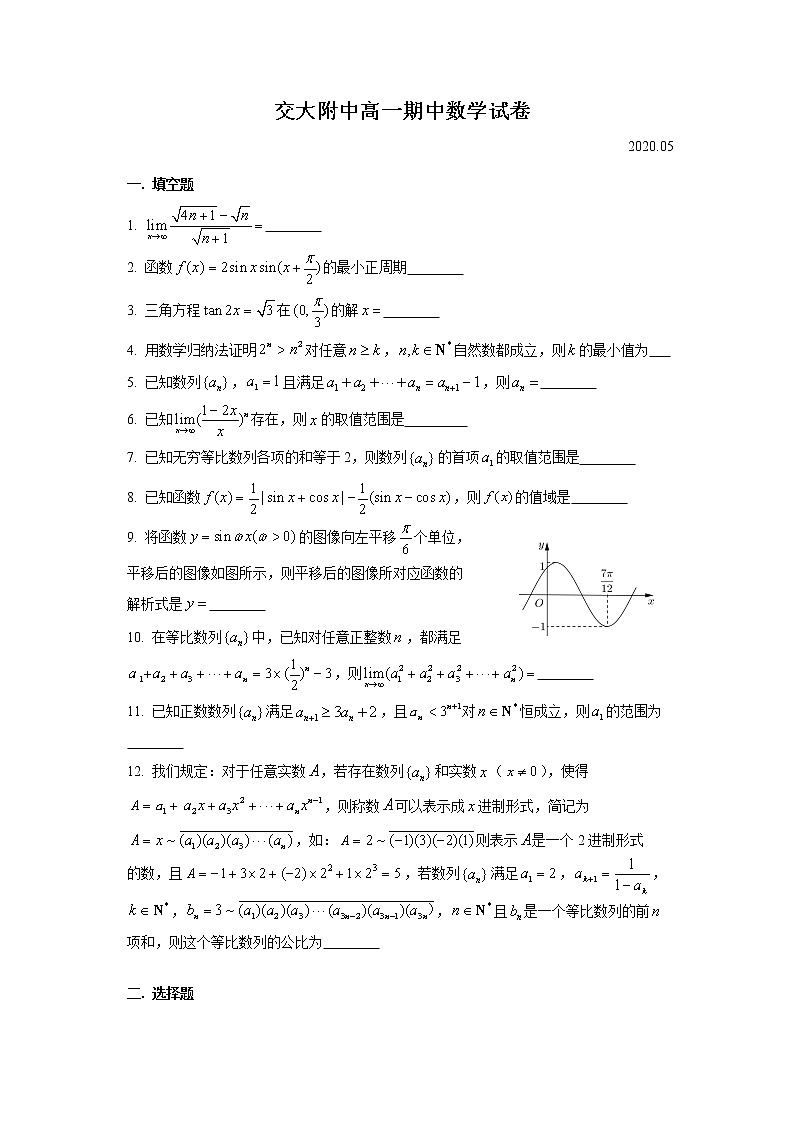 交大附中高一期中数学试卷
2020.05
一. 填空题
1. lim_{n→∞} (√(4n+1) − √n)/√(n+1) = ________
2. 函数 f(x) = 2sin x sin(x + π/2) 的最小正周期________
3. 三角方程 tan 2x = √3 在 (0, π/3) 的解 x = ________
4. 用数学归纳法证明 2^n > n^2 对任意 n ≥ k，n, k ∈ N* 自然数都成立，则 k 的最小值为 ___
5. 已知数列 {a_n}，a_1 = 1 且满足 a_1 + a_2 + ⋯ + a_n = a_{n+1} − 1，则 a_n = ________
6. 已知 lim_{n→∞} ((1 − 2x)/x)^n 存在，则 x 的取值范围是________
7. 已知无穷等比数列各项的和等于 2，则数列 {a_n} 的首项 a_1 的取值范围是________
8. 已知函数 f(x) = 1/2 |sin x + cos x| − 1/2 (sin x − cos x)，则 f(x) 的值域是________
9. 将函数 y = sin ω x(ω > 0) 的图像向左平移 π/6 个单位，
平移后的图像如图所示，则平移后的图像所对应函数的
解析式是 y = ________
y
1
7π/12
O
x
−1
10. 在等比数列 {a_n} 中，已知对任意正整数 n，都满足
a_1 + a_2 + a_3 + ⋯ + a_n = 3 × (1/2)^n − 3，则 lim_{n→∞} (a_1^2 + a_2^2 + a_3^2 + ⋯ + a_n^2) = ________
11. 已知正数数列 {a_n} 满足 a_{n+1} ≥ 3a_n + 2，且 a_n < 3^{n+1} 对 n ∈ N* 恒成立，则 a_1 的范围为
________
12. 我们规定：对于任意实数 A，若存在数列 {a_n} 和实数 x（x ≠ 0），使得
A = a_1 + a_2 x + a_3 x^2 + ⋯ + a_n x^{n−1}，则称数 A 可以表示成 x 进制形式，简记为
A = x ~ \overline{(a_1)(a_2)(a_3)⋯(a_n)}，如：A = 2 ~ \overline{(−1)(3)(−2)(1)} 则表示 A 是一个 2 进制形式
的数，且 A = −1 + 3×2 + (−2)×2^2 + 1×2^3 = 5，若数列 {a_n} 满足 a_1 = 2，a_{k+1} = 1/(1 − a_k)，
k ∈ N*，b_n = 3 ~ \overline{(a_1)(a_2)(a_3)⋯(a_{3n−2})(a_{3n−1})(a_{3n})}，n ∈ N* 且 b_n 是一个等比数列的前 n
项和，则这个等比数列的公比为________
二. 选择题